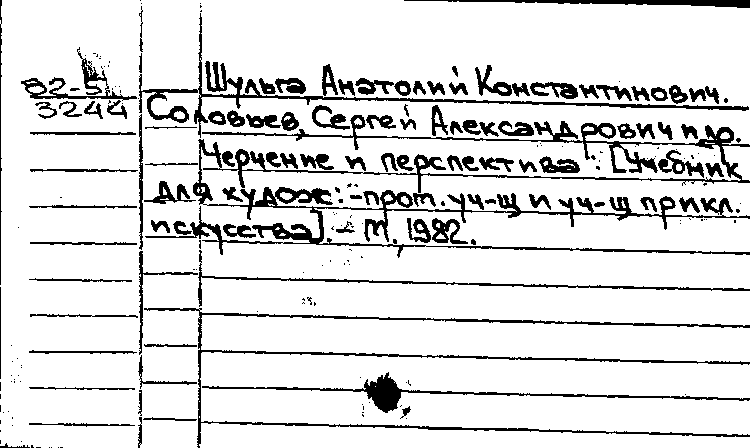 82-5
3244
Шульга, Анатолий Константинович.
Соловьев, Сергей Александрович и др.
Черчение и перспектива : [Учебник
для худож.-пром. уч-щ и уч-щ прикл.
искусства]. - М., 1982.